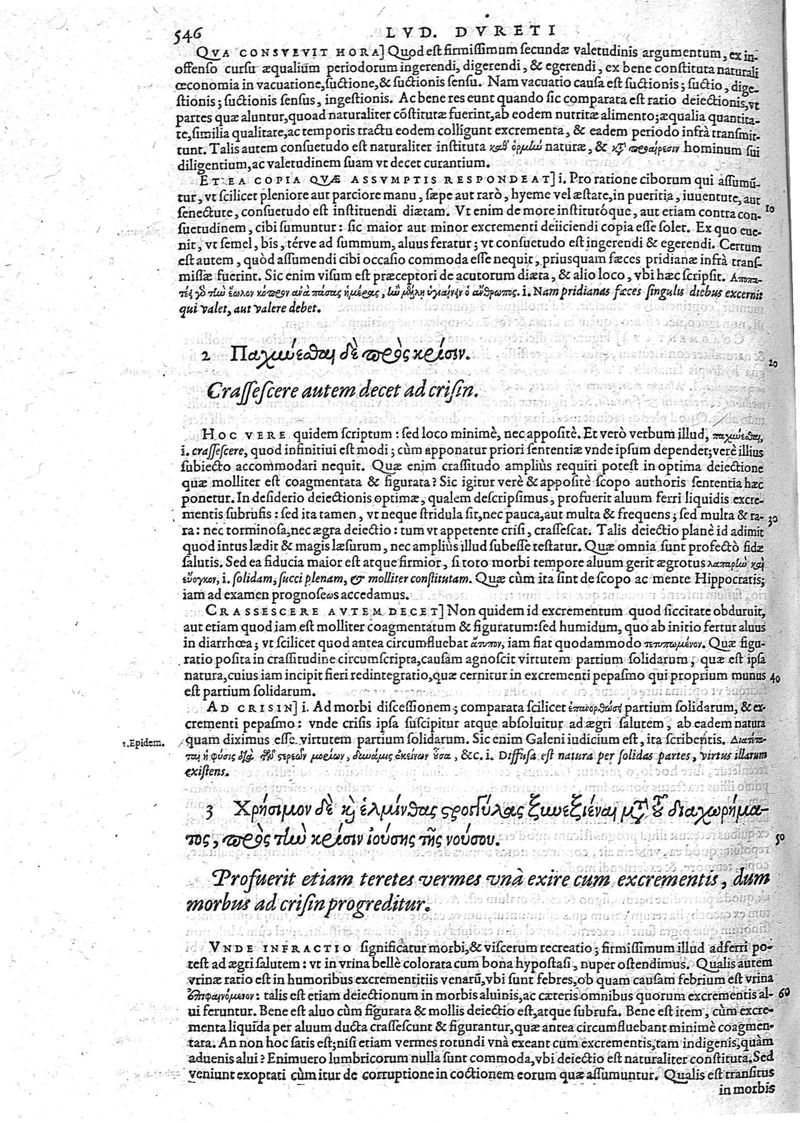 546 LVD. DVRETI
QVA CONSVEVIT HORA] Quod est firmissimum secundæ valetudinis argumentum, ex in-
offenso cursu æqualium periodorum ingerendi, digerendi, & egerendi, ex bene constituta naturali
œconomia in vacuatione, suctione, & suctionis sensu. Nam vacuatio causa est suctionis; suctio, dige-
stionis; suctionis sensus, ingestionis. Ac bene res eunt quando sic comparata est ratio deiectionis, vt
partes quæ aluntur, quoad naturaliter cōstitutæ fuerint, ab eodem nutritæ alimento; æqualia quantita-
te, similia qualitate, ac temporis tractu eodem colligunt excrementa, & eadem periodo infrà transmit-
tunt. Talis autem consuetudo est naturaliter instituta καθ' ὁρμὴν naturæ, & κτ̀ προαίρεσιν hominum sui
diligentium, ac valetudinem suam vt decet curantium.
ET EA COPIA QVÆ ASSVMPTIS RESPONDEAT] i. Pro ratione ciborum qui assumū-
tur, vt scilicet pleniore aut parciore manu, sæpe aut rarò, hyeme vel æstate, in pueritia, iuuentute, aut
senectute, consuetudo est instituendi diætam. Vt enim de more institutóque, aut etiam contra con- 10
suetudinem, cibi sumuntur: sic maior aut minor excrementi deiiciendi copia esse solet. Ex quo eue-
nit, vt semel, bis, térve ad summum, aluus feratur; vt consuetudo est ingerendi & egerendi. Certum
est autem, quòd assumendi cibi occasio commoda esse nequit, priusquam fæces pridianæ infrà trans-
missæ fuerint. Sic enim visum est præceptori de acutorum diæta, & alio loco, vbi hæc scripsit. Ἀποπα-
τεῖ γὸ τὴν ἕωλον κόπρον ἀνὰ πάσας ἡμέρας, ἢν μέλλῃ ὑγιαίνειν ὁ ἄνθρωπος. i. Nam pridianas fæces singulis diebus excernit
qui valet, aut valere debet.
2 Παχύνεσθαι δὲ πρὸς κρίσιν. 20
Crassescere autem decet ad crisin.
HOC VERE quidem scriptum: sed loco minimè, nec appositè. Et verò verbum illud, παχύνεσθαι,
i. crassescere, quod infinitiui est modi; cùm apponatur priori sententiæ vnde ipsum dependet; verè illius
subiecto accommodari nequit. Quæ enim crassitudo ampliùs requiri potest in optima deiectione
quæ molliter est coagmentata & figurata? Sic igitur verè & appositè scopo authoris sententia hæc
ponetur. In desiderio deiectionis optimæ, qualem descripsimus, profuerit aluum ferri liquidis excre-
mentis subrufis: sed ita tamen, vt neque stridula sit, nec pauca, aut multa & frequens; sed multa & ra- 30
ra: nec torminosa, nec ægra deiectio: tum vt appetente crisi, crassescat. Talis deiectio planè id adimit
quod intus lædit & magis læsurum, nec ampliùs illud subesse testatur. Quæ omnia sunt profectò fidæ
salutis. Sed ea fiducia maior est atque firmior, si toto morbi tempore aluum gerit ægrotus λαπαρὴν κὴ
εὔογκον, i. solidam, succi plenam, & molliter constitutam. Quæ cùm ita sint de scopo ac mente Hippocratis;
iam ad examen prognoseως accedamus.
CRASSESCERE AVTEM DECET] Non quidem id excrementum quod siccitate obduruit,
aut etiam quod iam est molliter coagmentatum & figuratum: sed humidum, quo ab initio fertur aluus
in diarrhœa; vt scilicet quod antea circumfluebat ἄπεπτον, iam fiat quodammodo πεπεπωμένον. Quæ figu-
ratio posita in crassitudine circumscripta, causam agnoscit virtutem partium solidarum, quæ est ipsa
natura, cuius iam incipit fieri redintegratio, quæ cernitur in excrementi pepasmo qui proprium munus 40
est partium solidarum.
AD CRISIN] i. Ad morbi discessionem; comparata scilicet ἐπανορθώσει partium solidarum, & ex-
crementi pepasmo: vnde crisis ipsa suscipitur atque absoluitur ad ægri salutem, ab eadem natura
1. Epidem. quam diximus esse virtutem partium solidarum. Sic enim Galeni iudicium est, ita scribentis. Διαπέπτα-
ται ἡ φύσις διὰ τῶν στερεῶν μορίων, δύναμις ἐκείνων οὖσα, &c. i. Diffusa est natura per solidas partes, virtus illarum
existens.
3 Χρήσιμον δὲ κὴ ἕλμινθας στρογγύλας ξυνεξιέναι μτ̀ τοῦ διαχωρήμα-
τος, πρὸς τὴν κρίσιν ἰούσης τῆς νούσου. 50
Profuerit etiam teretes vermes vnà exire cum excrementis, dum
morbus ad crisin progreditur.
VNDE INFRACTIO significatur morbi, & viscerum recreatio; firmissimum illud adferri po-
test ad ægri salutem: vt in vrina bellè colorata cum bona hypostasi, nuper ostendimus. Qualis autem
vrinæ ratio est in humoribus excrementitiis venarū, vbi sunt febres, ob quam causam febrium est vrina
ἐπιφαινόμενον: talis est etiam deiectionum in morbis aluinis, ac cæteris omnibus quorum excrementis al- 60
ui feruntur. Bene est aluo cùm figurata & mollis deiectio est, atque subrufa. Bene est item, cùm excre-
menta liquida per aluum ducta crassescunt & figurantur, quæ antea circumfluebant minimè coagmen-
tata. An non hoc satis est; nisi etiam vermes rotundi vnà exeant cum excrementis, tam indigenis, quàm
aduenis alui? Enimuero lumbricorum nulla sunt commoda, vbi deiectio est naturaliter constituta. Sed
veniunt exoptati cùm itur de corruptione in coctionem eorum quæ assumuntur. Qualis est transitus
in morbis